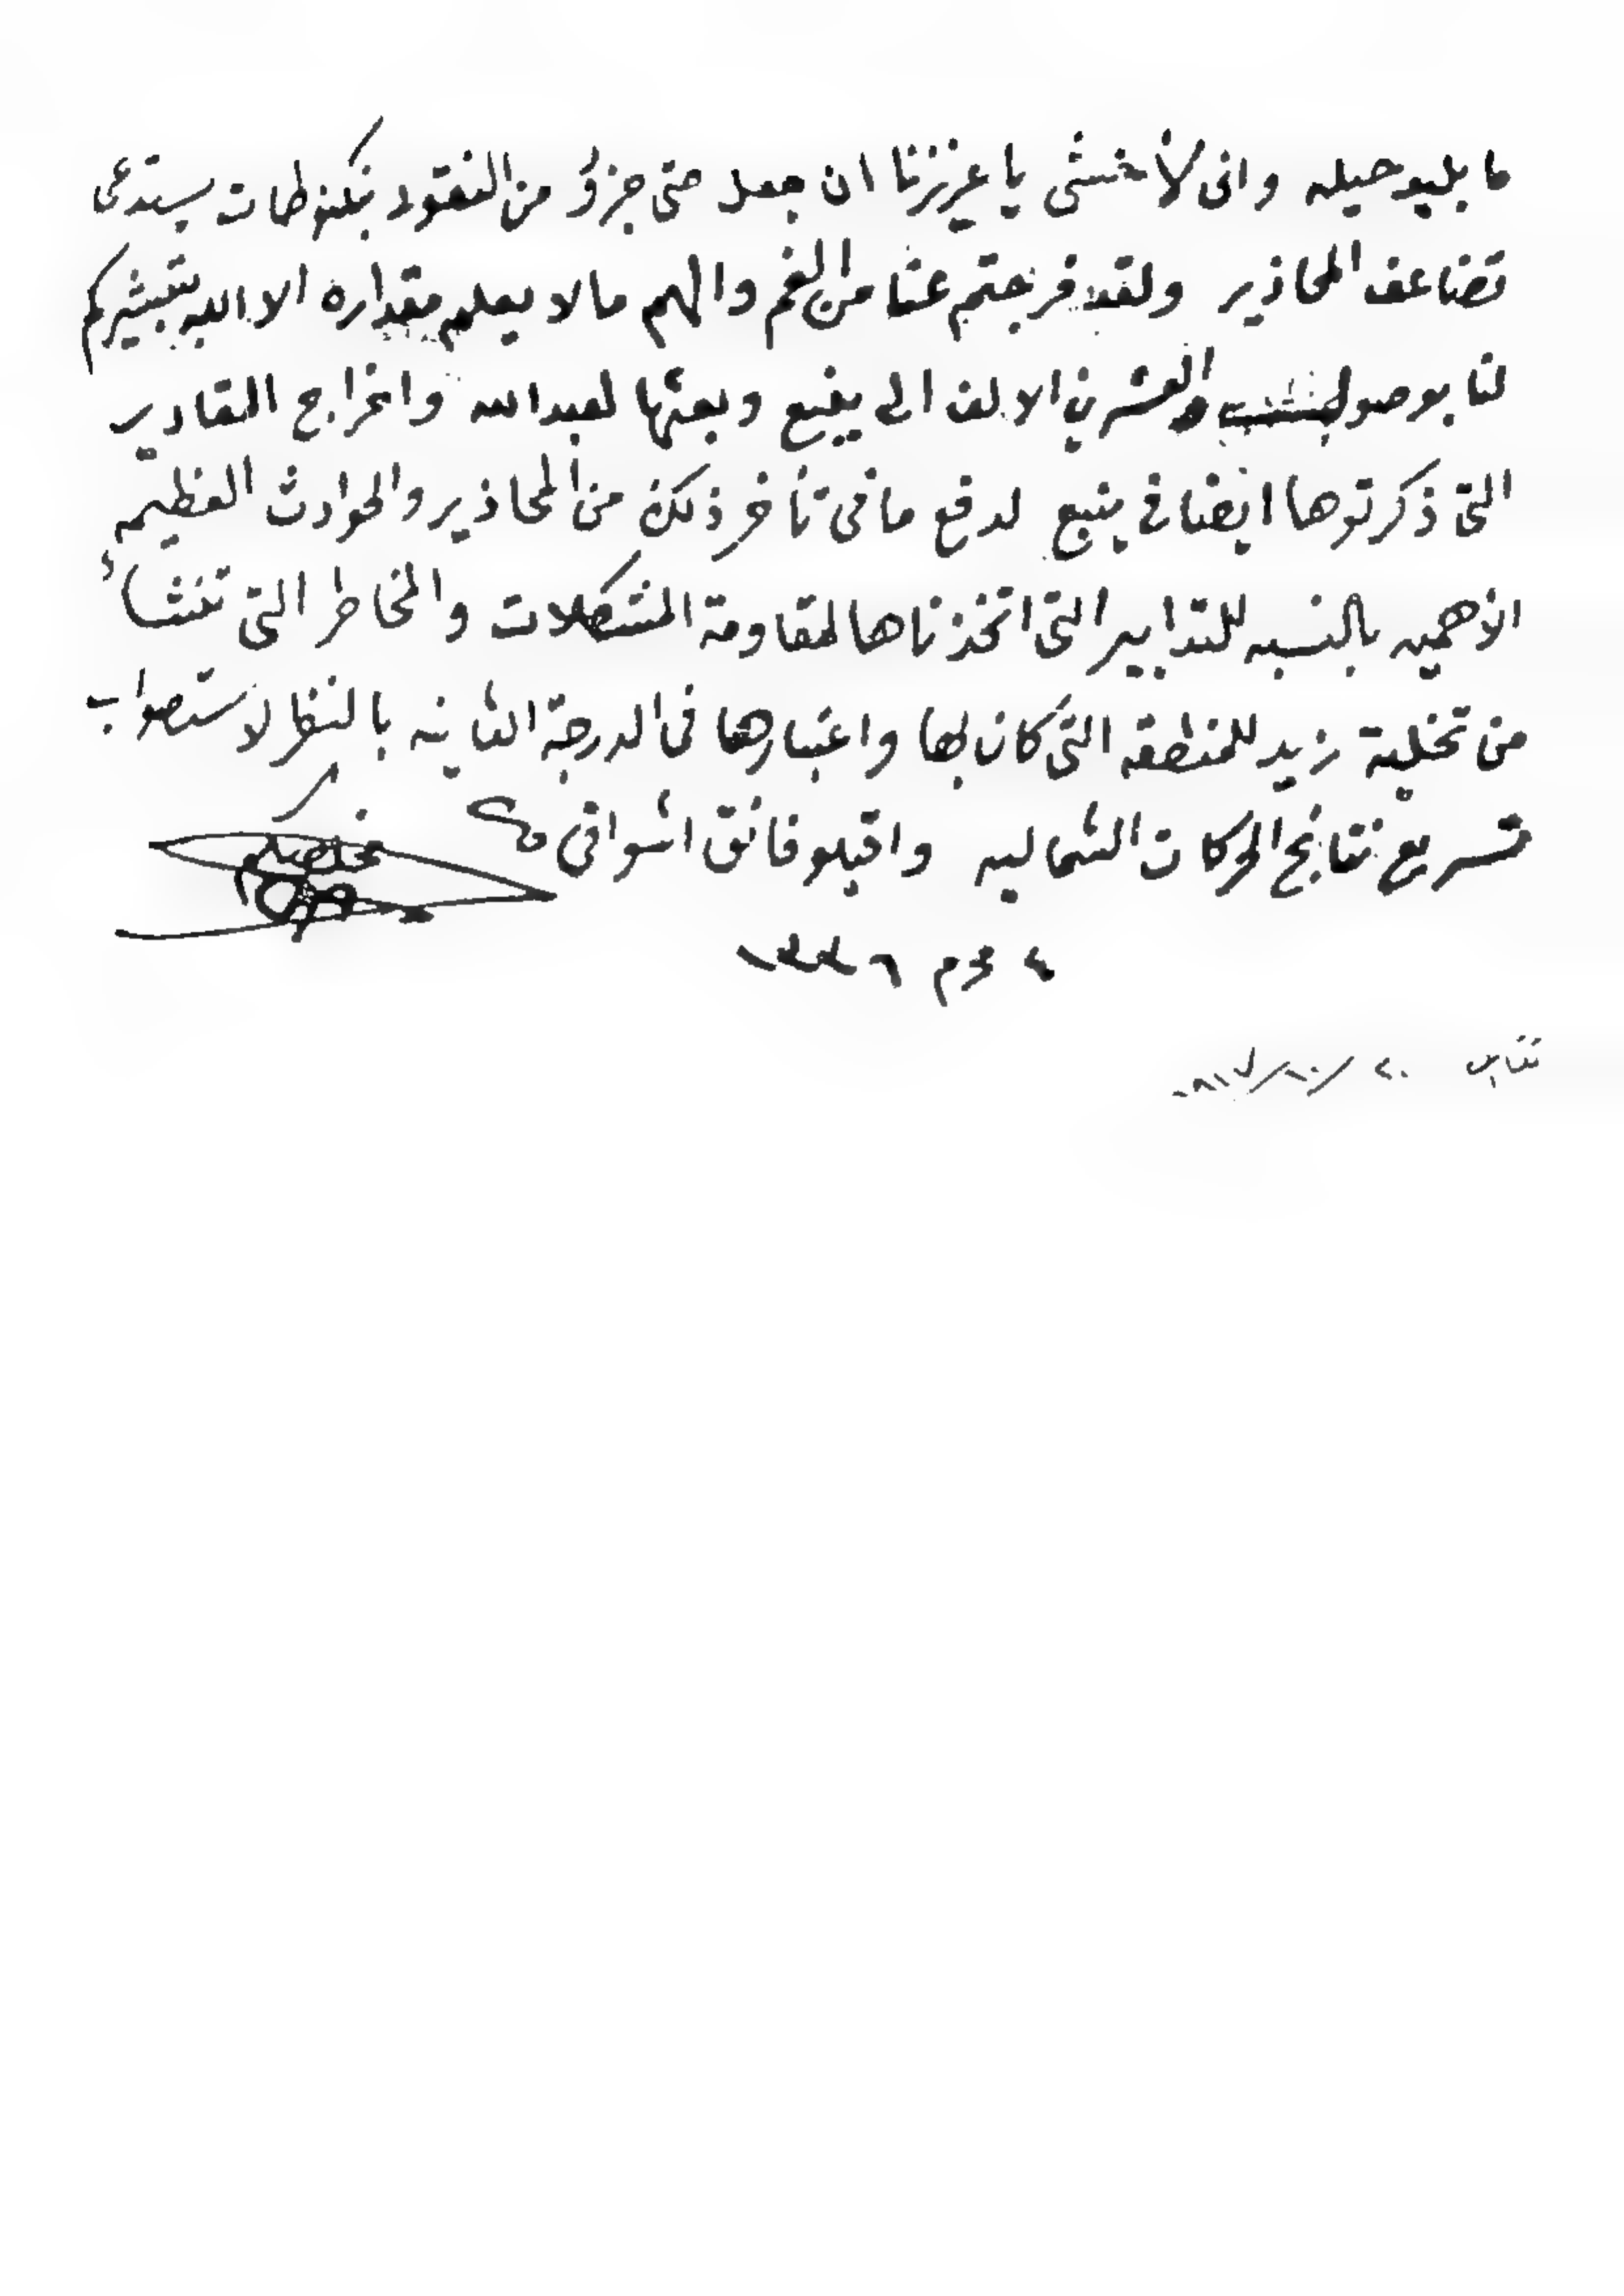 ما بليد حيله وانى لأخشى يا عزيزنا ان جعل حتى جزؤ من النقود بنكنوطات يستدعى
تضاعف المحاذير ولقد فرجتم عنا من الغم والهم مالا يعلم مقداره الا الله بتبشيركم
لنا بوصول العشرين الالف الى ينبع وبعثها لعبدالله واخراج المقادير
التى ذكرتوها ايضا فى ينبع لدفع ما فى تأخر ذلك من المحاذير والحوادث العظيمة
الأهميه بالنسبه للتدابير التى اتخذناها لمقاومة المشكلات والمخاطر التى تنشاء
من تخلية زيد للمنطقه التى كان بها واعتبارها فى الدرجة الثانيه بالنظر لاستصواب
تسريع نتايج الحركات الشماليه واقبلو فائق اشواقى
مخلصكم
٤ محرم ١٣٣٦
٢٠/١٠/١٩١٧